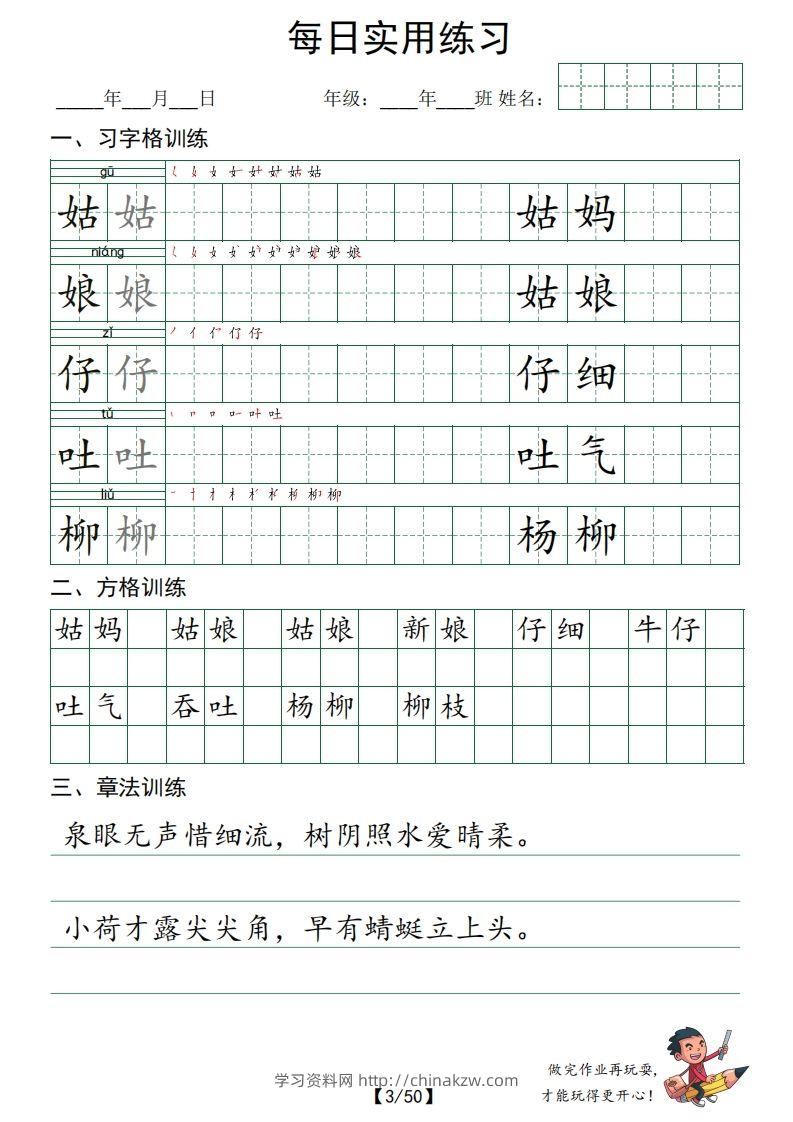 每日实用练习
_____年___月___日 年级：____年____班 姓名：
一、习字格训练
gū
姑 姑 姑 妈
niáng
娘 娘 姑 娘
zǐ
仔 仔 仔 细
tǔ
吐 吐 吐 气
liǔ
柳 柳 杨 柳
二、方格训练
姑 妈 姑 娘 姑 娘 新 娘 仔 细 牛 仔
吐 气 吞 吐 杨 柳 柳 枝
三、章法训练
泉眼无声惜细流，树阴照水爱晴柔。
小荷才露尖尖角，早有蜻蜓立上头。
做完作业再玩耍，
才能玩得更开心！
学习资料网 http://chinakzw.com
【3/50】